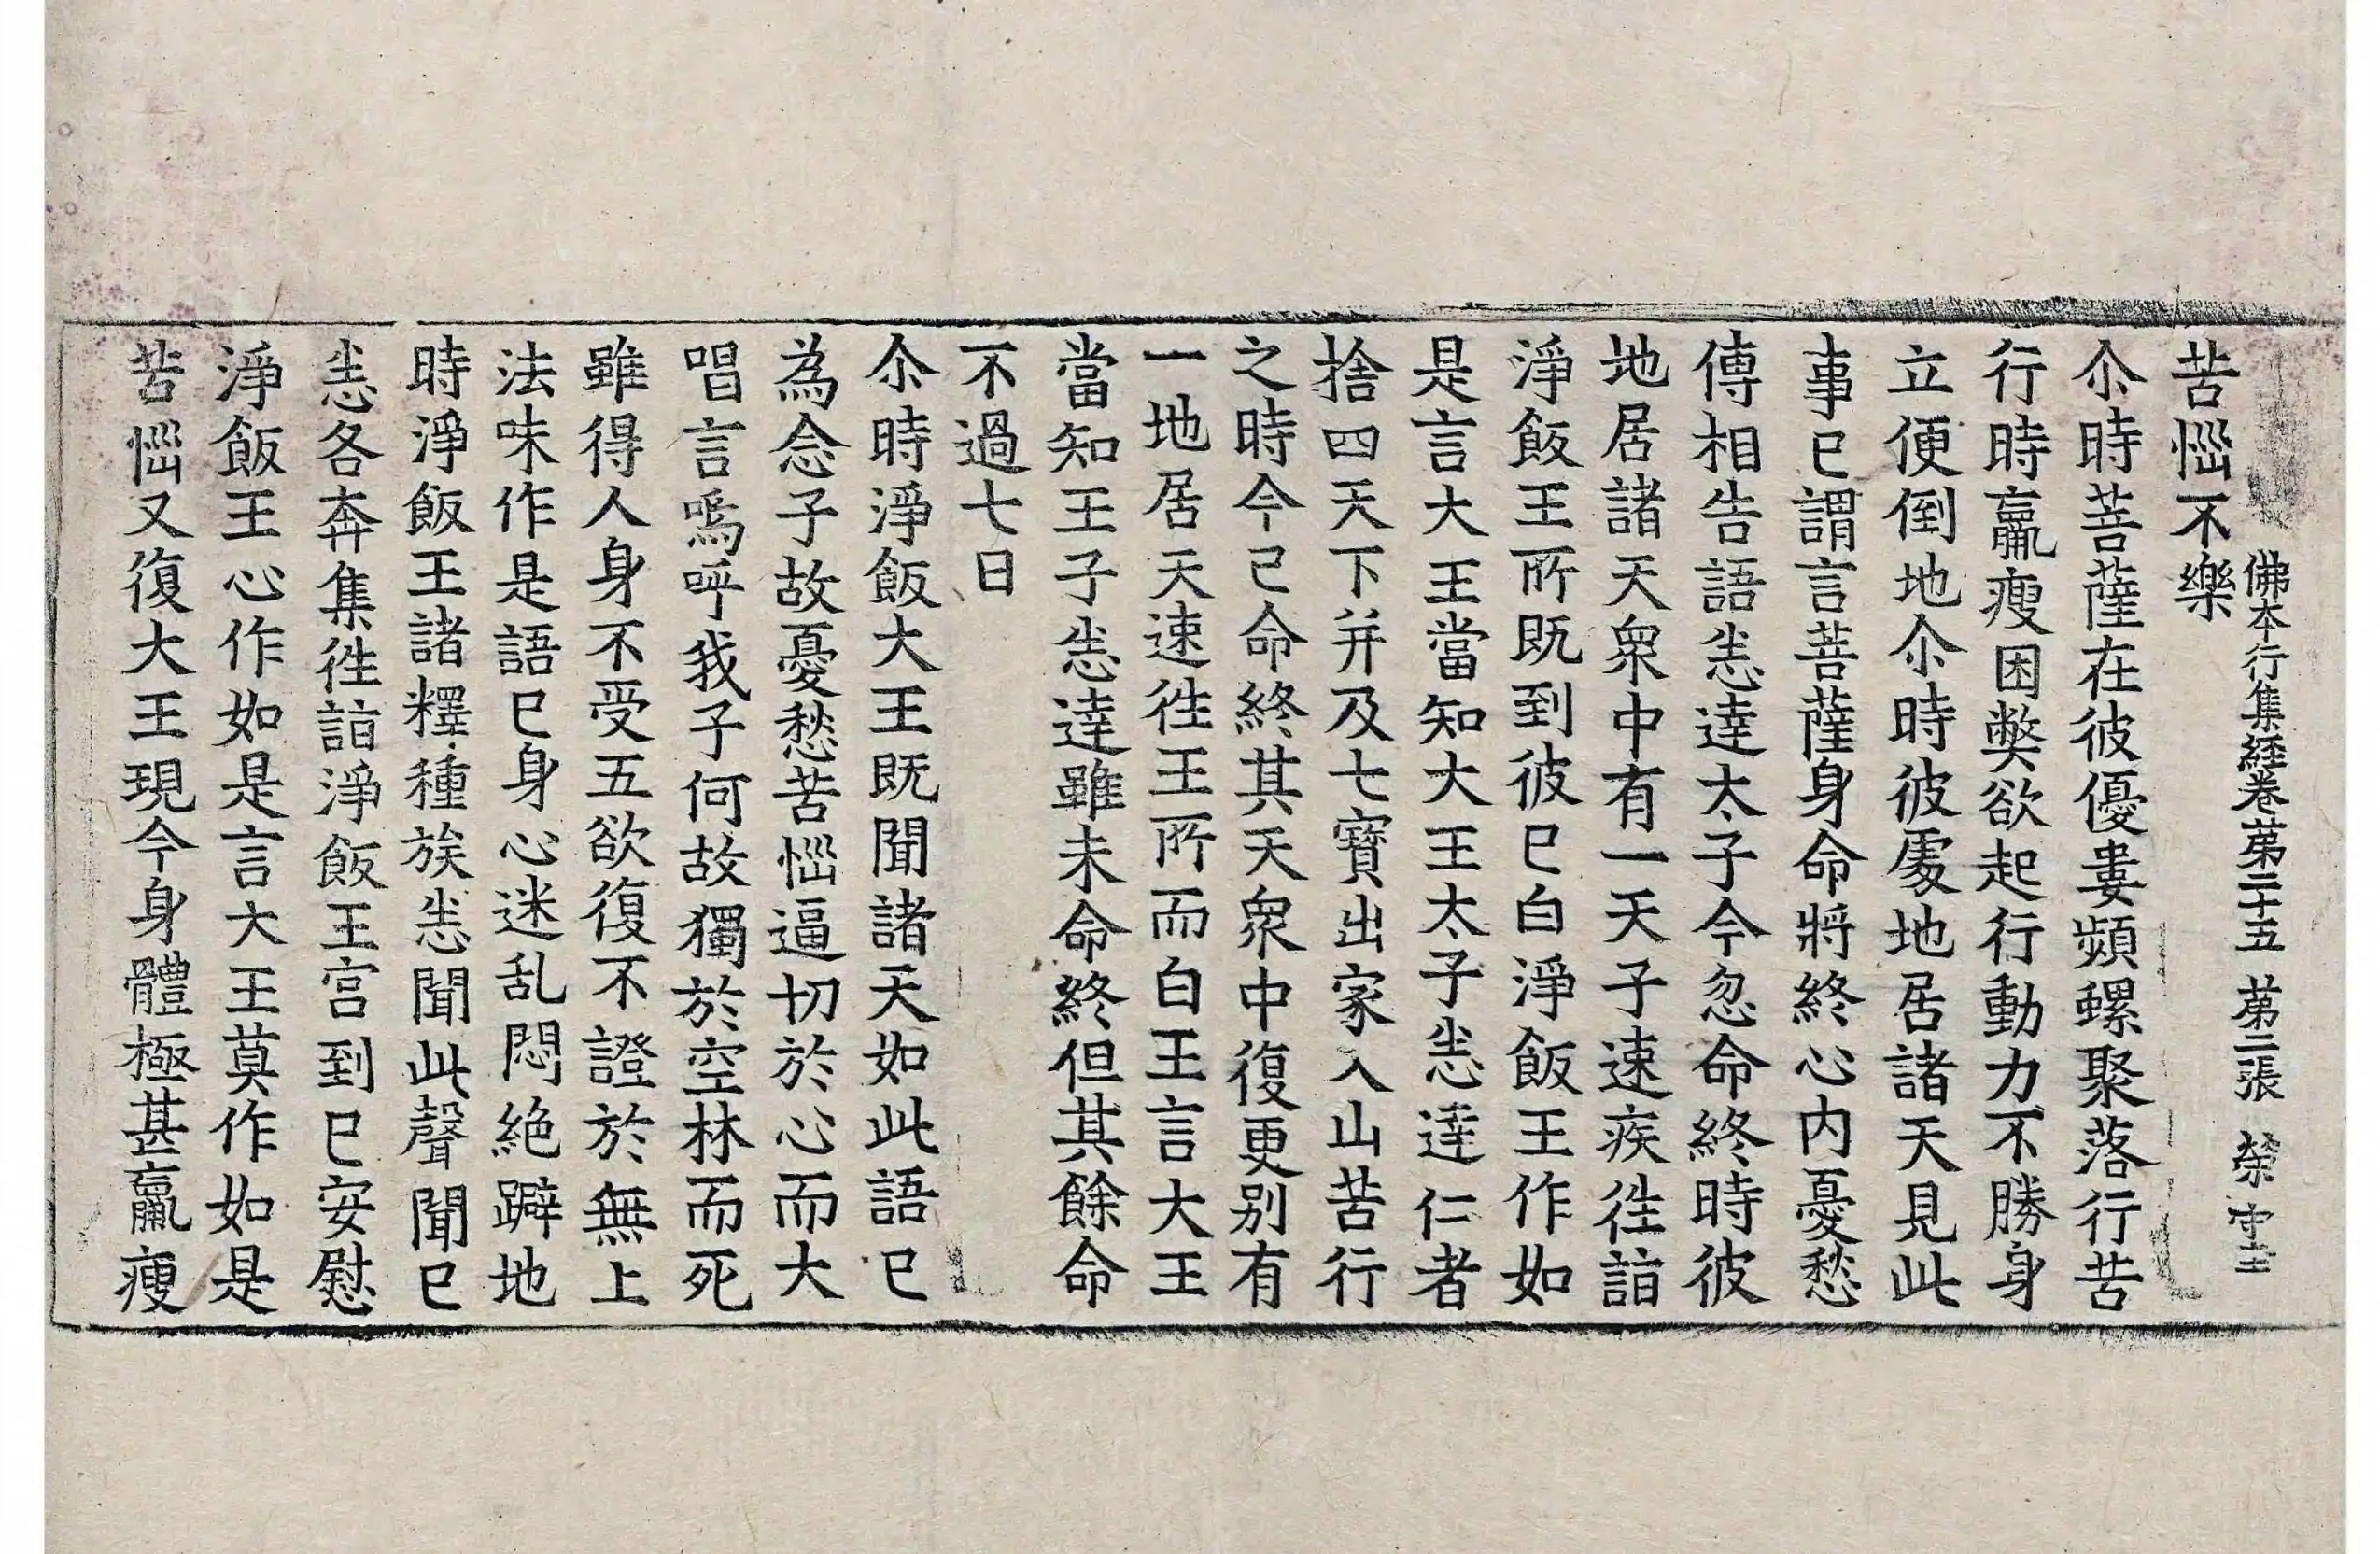 佛本行集經卷第二十五 第二張 榮字
苦惱不樂
尒時菩薩在彼優婁頻螺聚落行苦
行時羸瘦困弊欲起行動力不勝身
立便倒地尒時彼處地居諸天見此
事已謂言菩薩身命將終心内憂愁
傳相告語悉達太子今忽命終時彼
地居諸天衆中有一天子速疾徃詣
淨飯王所既到彼已白淨飯王作如
是言大王當知大王太子悉達仁者
捨四天下并及七寶出家入山苦行
之時今已命終其天衆中復更別有
一地居天速徃王所而白王言大王
當知王子悉達雖未命終但其餘命
不過七日
尒時淨飯大王既聞諸天如此語已
為念子故憂愁苦惱逼切於心而大
唱言嗚呼我子何故獨於空林而死
雖得人身不受五欲復不證於無上
法味作是語已身心迷乱悶絶躃地
時淨飯王諸釋種族悉聞此聲聞已
悉各奔集徃詣淨飯王宫到已安慰
淨飯王心作如是言大王莫作如是
苦惱又復大王現今身體極甚羸瘦